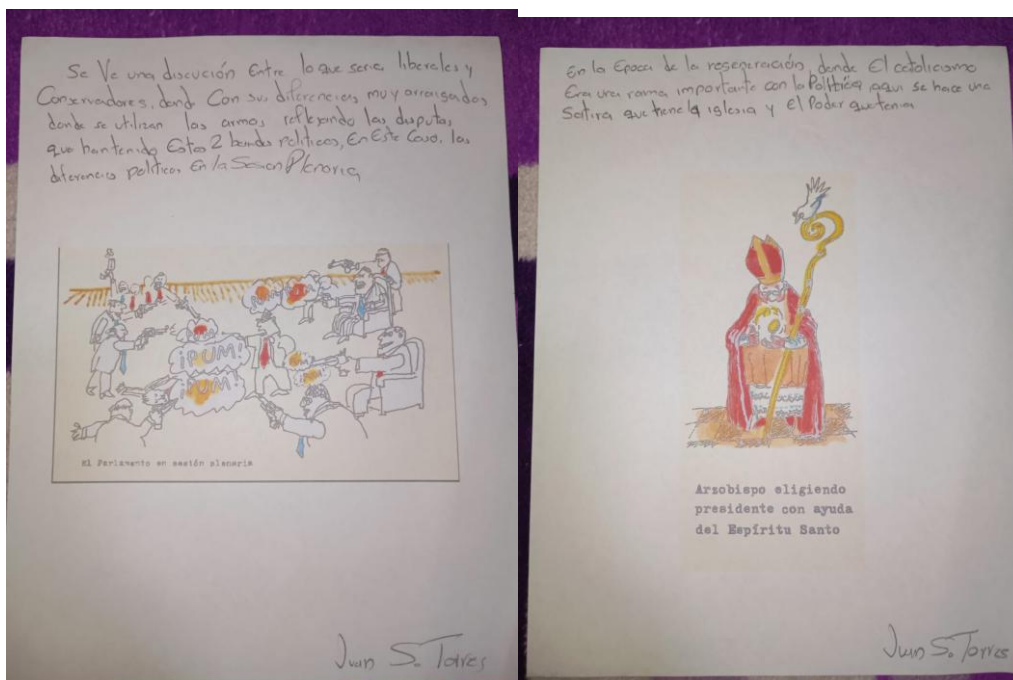 Se Ve una discución Entre lo que seria, liberales y
Conservadores, dond Con sus diferencias muy arraigadas
donde se utilizan las armas, reflejando las disputas
que han tenido Estos 2 bandos politicos, En Este Caso, las
diferencias politicas En la Sesion Plenaria
¡PUM!
¡PUM!
El Parlamento en sesión plenaria
Juan S. Torres
En la Epoca de la regeneración, donde El catolicismo
Era una rama importante con la Política, aqui se hace una
Satira que tiene la iglesia y El Poder que tenia
Arzobispo eligiendo
presidente con ayuda
del Espíritu Santo
Juan S. Torres